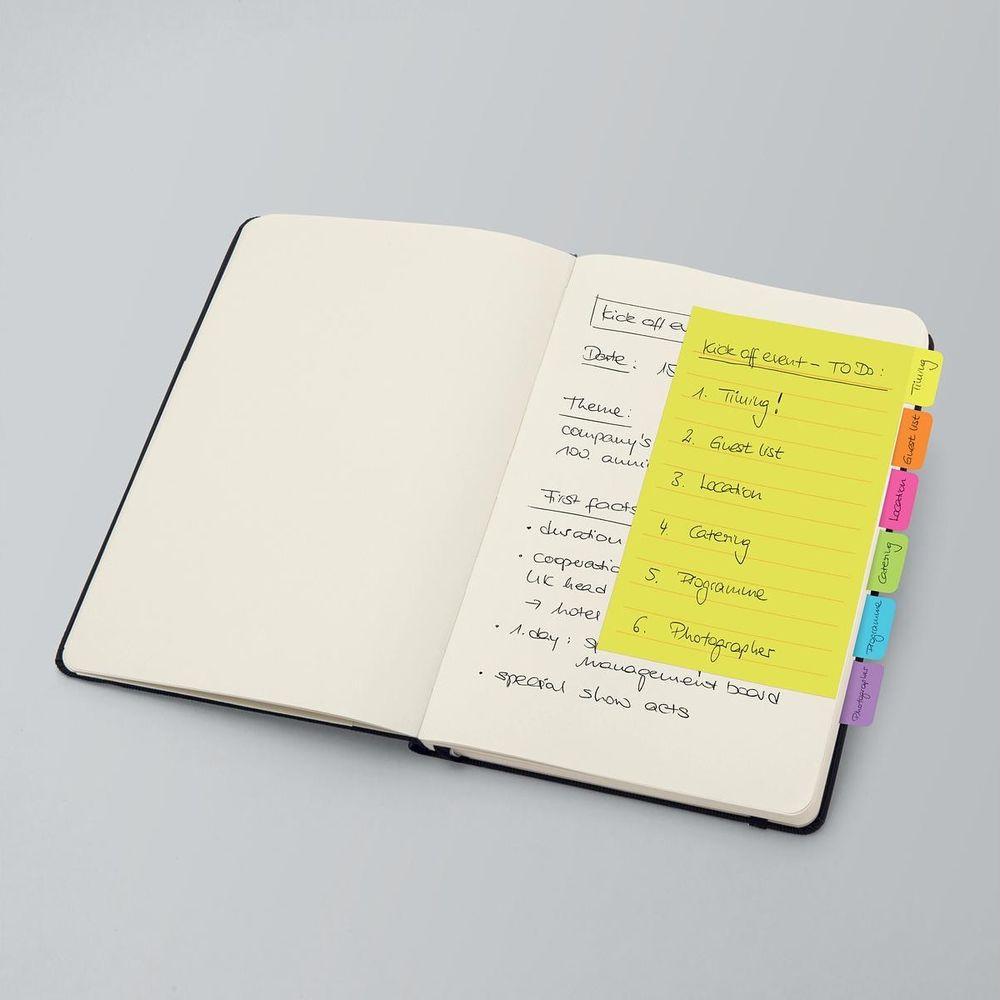 Kick off ev
Date: 15
Theme:
company's
100 anni
First facts
• duration
• cooperatio
UK head
→ hotel
• 1. day: sp
management board
• special show acts
Kick off event – TO Do:
1. Timing!
2. Guest list
3. Location
4. Catering
5. Programme
6. Photographer
Timing
Guest list
Location
Catering
Programme
Photographer